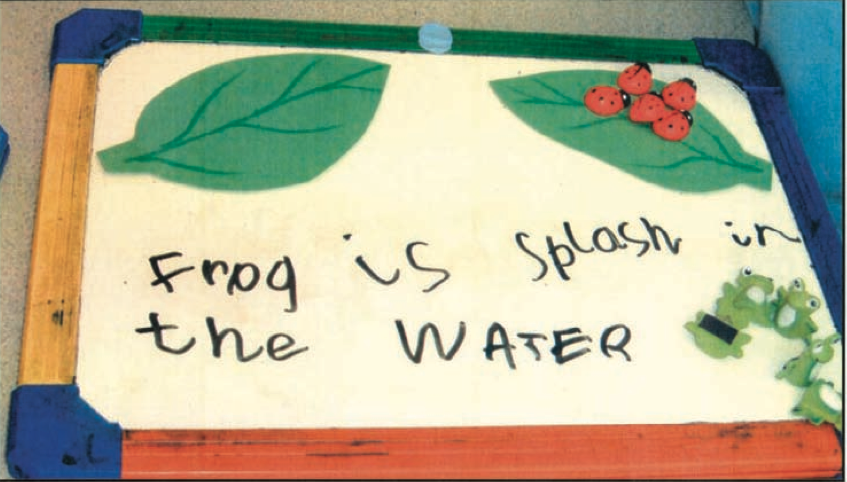 Frog is Splash in
the WATER